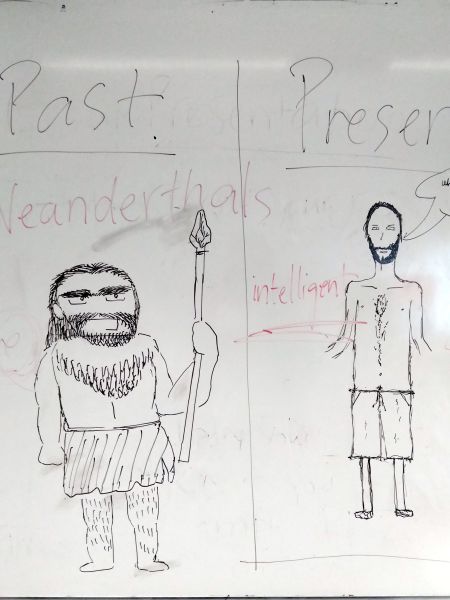 Past
Preser
Neanderthals
intelligent